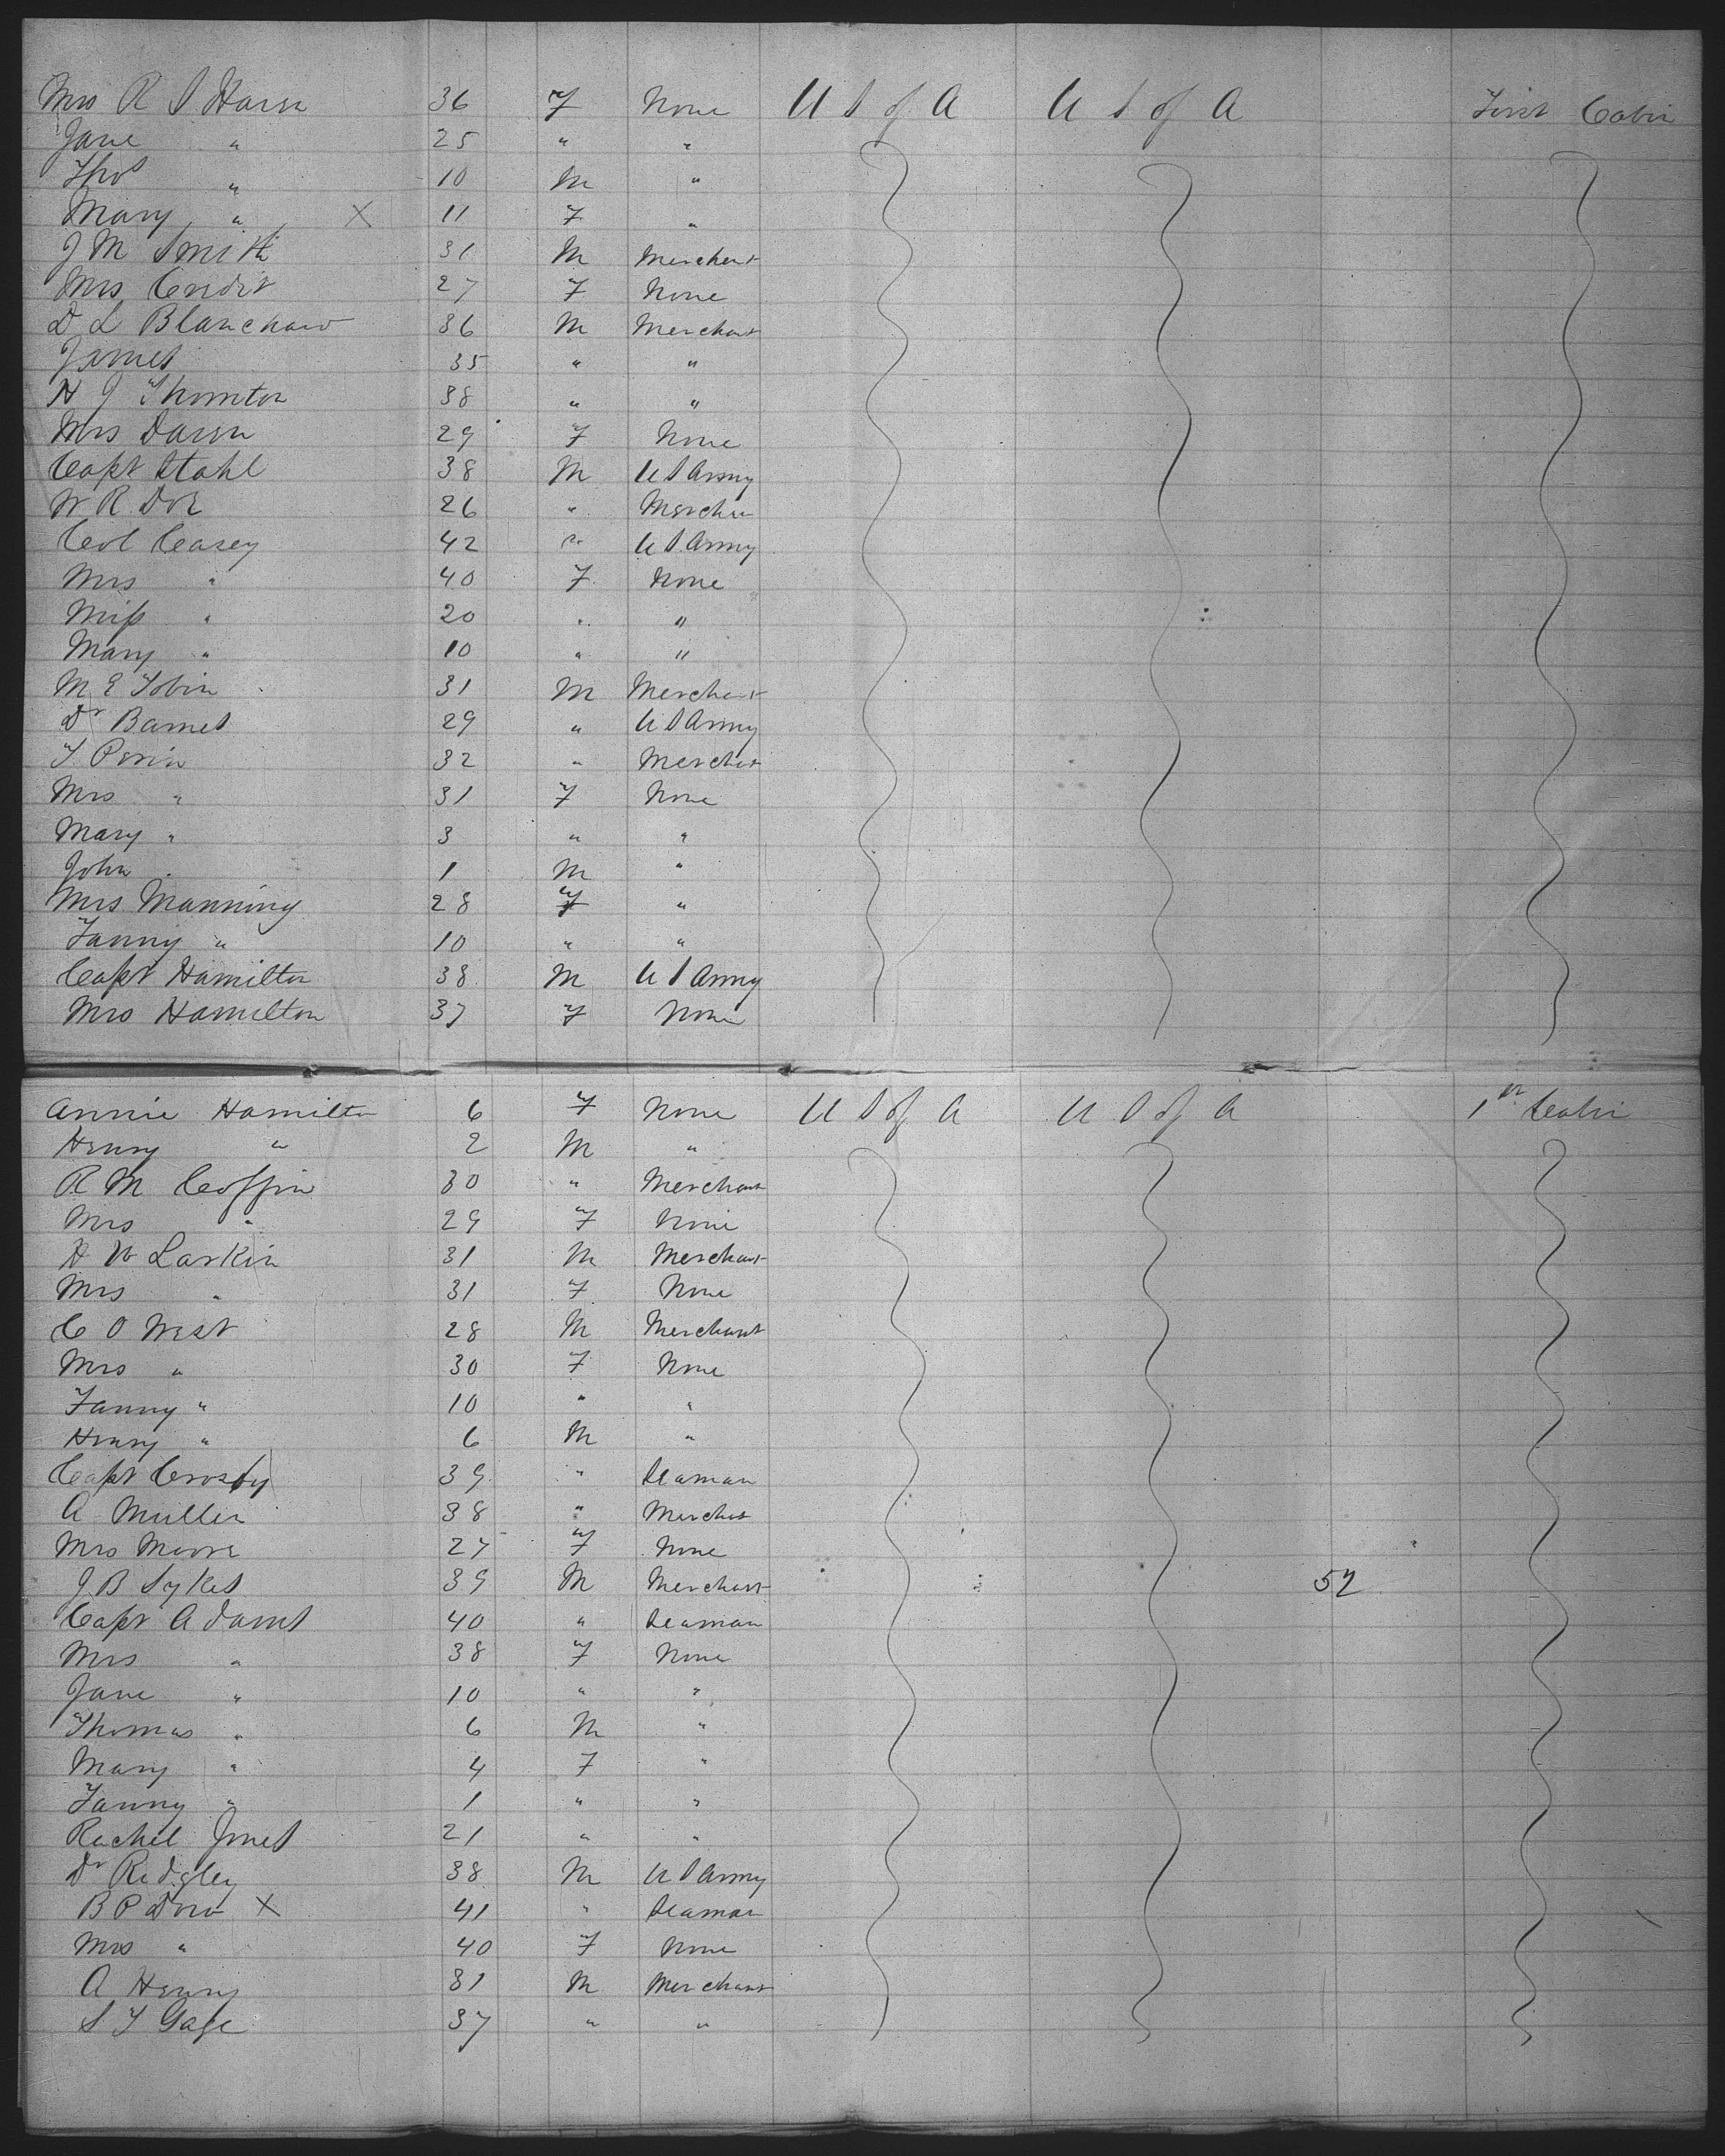 Mrs R S Harsn 36 F None U S of A U S of A First Cabin
Jane " 25 " "
Thos " 10 M "
Mary " X 11 F "
J M Smith 31 M Merchant
Mrs Credit 27 F None
D L Blanchard 36 M Merchant
James 35 " "
H J Thornton 38 " "
Mrs 29 F None
Capt Stahl 38 M U S Army
W R Doe 26 " Merchan
Col Casey 42 " U S Army
Mrs " 40 F None
Miss " 20 " "
Mary " 10 " "
M E Tobin 31 M Merchant
Dr Barnes 29 " U S Army
T Perin 32 " Merchat
Mrs " 31 F None
Mary " 3 " "
John 1 M "
Mrs Manning 28 F "
Fanny " 10 " "
Capt Hamilton 38 M U S Army
Mrs Hamilton 37 F None
Annie Hamilton 6 F None U S of A U S of A 1st Cabin
Henry " 2 M "
R M Coffin 30 " Merchant
Mrs " 29 F None
H W Larkin 31 M Merchant
Mrs " 31 F None
C O West 28 M Merchant
Mrs " 30 F None
Fanny " 10 " "
Henry " 6 M "
Capt Crosby 39 " Seaman
A Muller 38 " Merchat
Mrs Moore 27 F None
J B Sykes 39 M Merchant 52
Capt Adams 40 " Seaman
Mrs " 38 F None
Jane " 10 " "
Thomas " 6 M "
Mary " 4 F "
Fanny " 1 " "
Rachel Jones 21 " "
Dr Ridgley 38 M U S Army
B P Dow X 41 " Seaman
Mrs " 40 F None
A Henry 31 M Merchant
S T Gage 37 " "